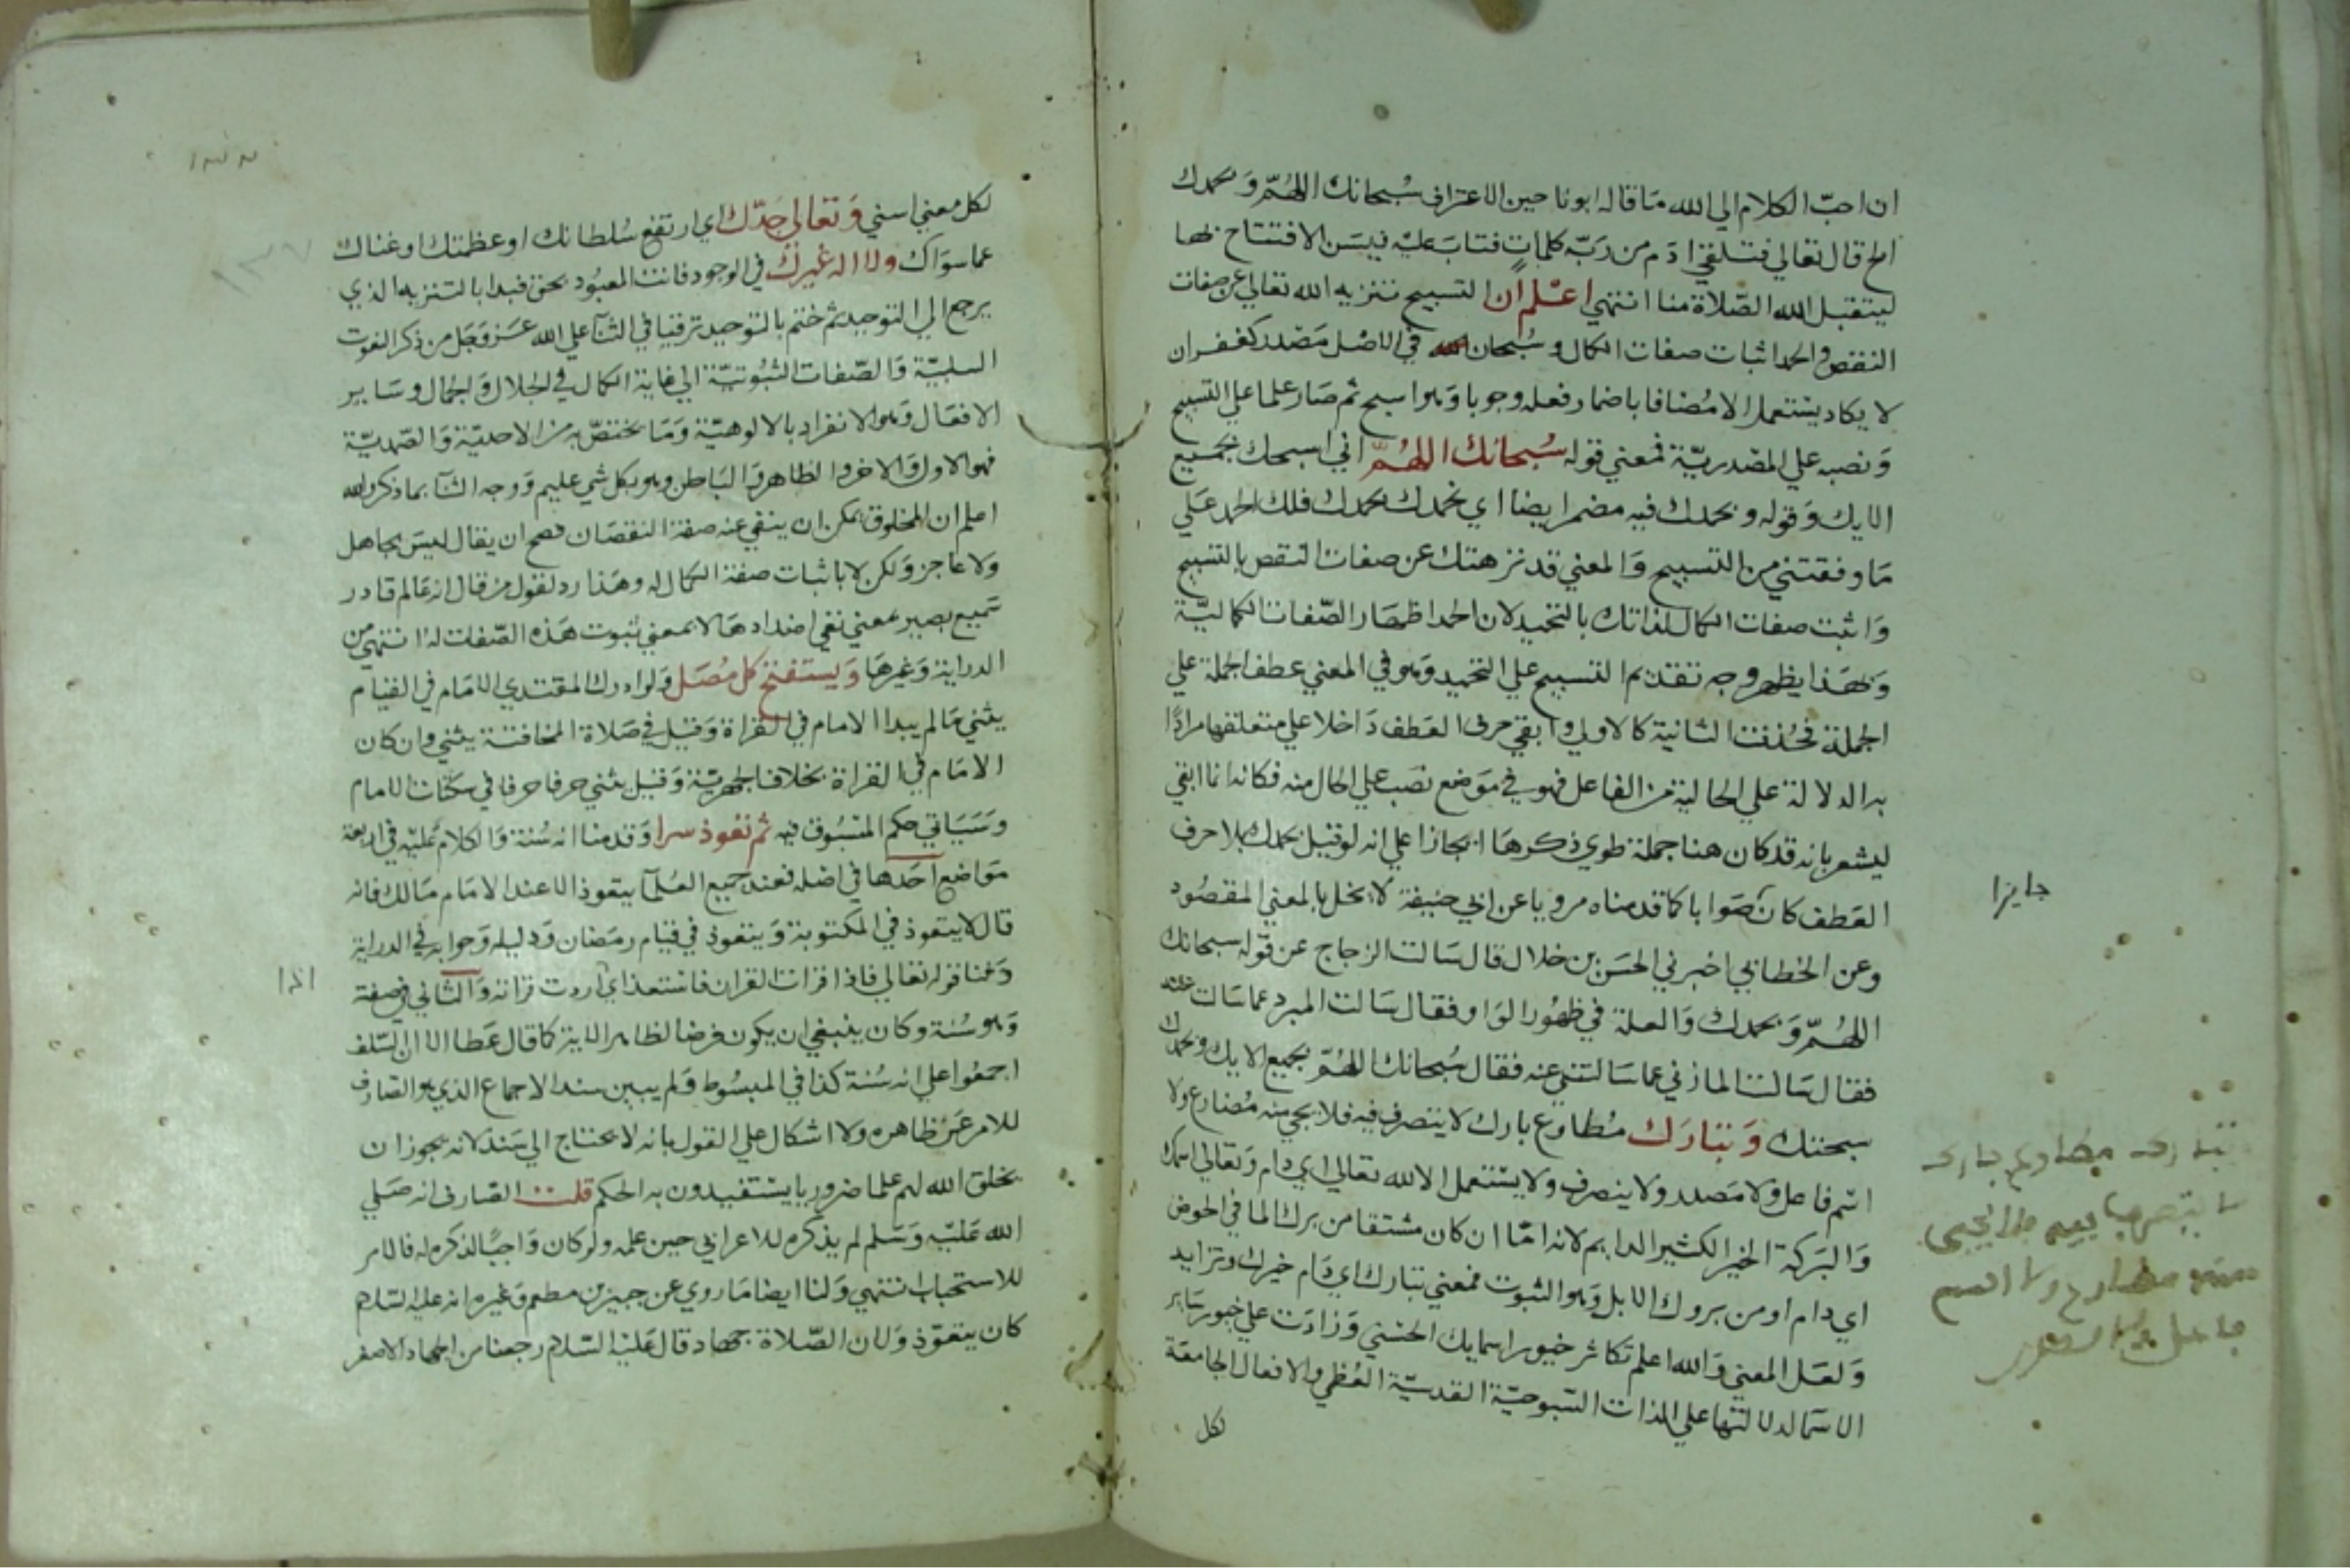 ان احبّ الكلام الي الله مَا قاله ابونا حين الاعتراف سُبحانك اللهُمّ وَبحمدك
الخ قال تعالي فتلقي ادَم من رَبّه كلماتٍ فتابَ عليْه فيسَن الافتتاح بها
ليتقبل الله الصّلاة منا انتهي اعْلم اَن التسبيح تنزيه الله تعالي عن صفات
النقص والحمد اثبات صفات الكمال وسُبحان في الاصْل مَصْدر كغفران
لا يكاد يسْتعمل الا مُضافا باضمار فعله وجوبا وَهو اسبح ثم صَار علما علي التسبيح
وَنصبه علي المصْدريّة فمعني قوله سُبحانك اللهُمّ اني اسبحك بجميع
الايك وَقوله وبحمدك فيه مضمر ايضا اي نحمدك بحمدك فلك الحمد عَلي
مَا وفقتني من التسبيح وَالمعني قد نزهتك عن صفات النقص بالتسبيح
وَاثبت صفات الكمال لذاتك بالتحميد لان الحمد اظهَار الصّفات الكماليّة
وَبهَذا يظهر وجه تقديم التسبيح علي التحميد وَهو في المعني عطف الجملة علي
الجملة فحُذفت الثانية كالاولي وابقي حرف العَطف دَاخلا علي متعلقها مرادًا
به الدلالة علي الحالية من الفاعل فهو في مَوَضع نصَب علي الحال منه فكانه انما ابقي
ليشعر بانه قد كان هنا جملة طوي ذكرهَا ايجازا علي انه لو قيْل بحمدك بلا حرف
العَطف كان صَوابا كما قدمناه مرويا عن ابي حنيفة لا يخل بالمعني المقصُود
جايزا
وعن الخطابي اخبرني الحسَن بن خلال قال سَالت الزجاج عن قوله سبحانك
اللهُمّ وَبحمدك وَالعلة في ظهُور الوَاو فقال سَالت المبرد عما سَالت عنه
فقال سَالت المازني عما سَالتني عنه فقال سُبحانك اللهُمّ بجميع الايك وبحمدك
سبحتك وَتبَارَك مُطاوع بارك لا يتصرف فيه فلا يجي منه مُضارع ولا
اسْم فاعل ولا مَصدر ولا ينصرف ولا يسْتعمل الا لله تعالي اي دَام وَتعالي اسمك
وَالبَركة الخير الكثير الدايم لانه امّا ان كان مشتقا من برك الما في الحوض
اي دام او من بروك الابل وَهو الثبوت فمعني تبارك اي دَام خيرك وتزايد
وَلعَل المعني وَالله اعلم تكاثر خيور اسمايك الحسْني وَزادَت علي خيور سَاير
الاسَما لدلالتها علي الذات السّبوحيّة القدسيّة العُظمي والافعال الجامعَة
لكل
تبارك مطاوع بارك
لا يتصرف فيه فلا يجي
منه مضارع ولا اسم
فاعل ولا مصدر
لكل معني اسني وَتعَالي جَدّك اي ارتفع سُلطانك او عظمتك او غناك
عما سوَاك ولا اله غيرك في الوجود فانت المعبُود بحق فبدا بالتنزيه الذي
يرجع الي التوحيد ثم ختم بالتوحيد ترقيا في الثنآ علي الله عَز وَجَل من ذكر النعوت
السلبيّة وَالصّفات الثبُوتيّة الي غاية الكمال في الجلال وَالجمال وسَاير
الافعَال وَهو الانفراد بالالوهيّة وَمَا يختصّ به من الاحديّة وَالصّمديّة
فهو الاول وَالاخر وَالظاهر وَالبَاطن وهو بكل شي عليم وَوجه الثنآ بما ذكر والله
اعلم ان المخلوق يمكن ان ينفي عنه صفة النقصَان فصح ان يقال ليسَ بجاهل
ولا عاجز وَلكن لا باثبات صفة الكمال له وهَذا رد لقول من قال انه عَالم قادر
سَميع بصير بمعني نفي اضدادهَا لا بمعني ثبوت هَذه الصّفات له انتهي من
الدراية وَغيرهَا وَيستفتح كل مُصَل وَلو ادرك المقتدي الامَام في القيام
يثني مَا لم يبدا الامام في القراة وَقيل في صَلاة المخافتة يثني وان كان
الامَام في القراة بخلاف الجهريّة وَقيل يثني حرفا حرفا في سكتات الامام
وسَيَاتي حكم المسْبُوق فيه ثم تعَوذ سرا وَقدمنا انه سُنة وَالكلام عَليْه في اربعة
مَوَاضع آحَدها في اصْله فعند جميع العُلمآ يتعوذ الا عند الامَام مَالك فانه
قال لا يتعوذ في المكتوبة وَيتعوذ في قيام رمَضان وَدليله وَجوابه في الدراية
وَلنا قوله تعَالي فاذا قرات القران فاسْتعذ اي اردت قراته وَالثاني في صفته
وَهو سُنة وكان ينبغي ان يكون فرضا لظاهر الاية كما قال عَطا الا ان السّلف
اجمعُوا علي انه سُنة كذا في المبسُوط وَلم يبين سند الاجماع الذي هو الصَارف
للامر عَن ظاهره ولا اشكال علي القول بانه لا يحتاج الي سَند لانه يجوز ان
يخلق الله لهم علما ضروريا يسْتفيدون به الحكم قلت الصَارف انه صَلي
الله عَليْه وَسَلم لم يذكره للاعرابي حين علمه ولو كان وَاجبًا لذكره له فالامر
للاستحباب انتهي وَلنا ايضا مَا روي عن جبير بن مطعم وَغيره انه عليه السّلام
كان يتعَوّذ وَلان الصّلاة جهَاد قال عَليْه السّلام رجعنا من الجهاد الاصغر